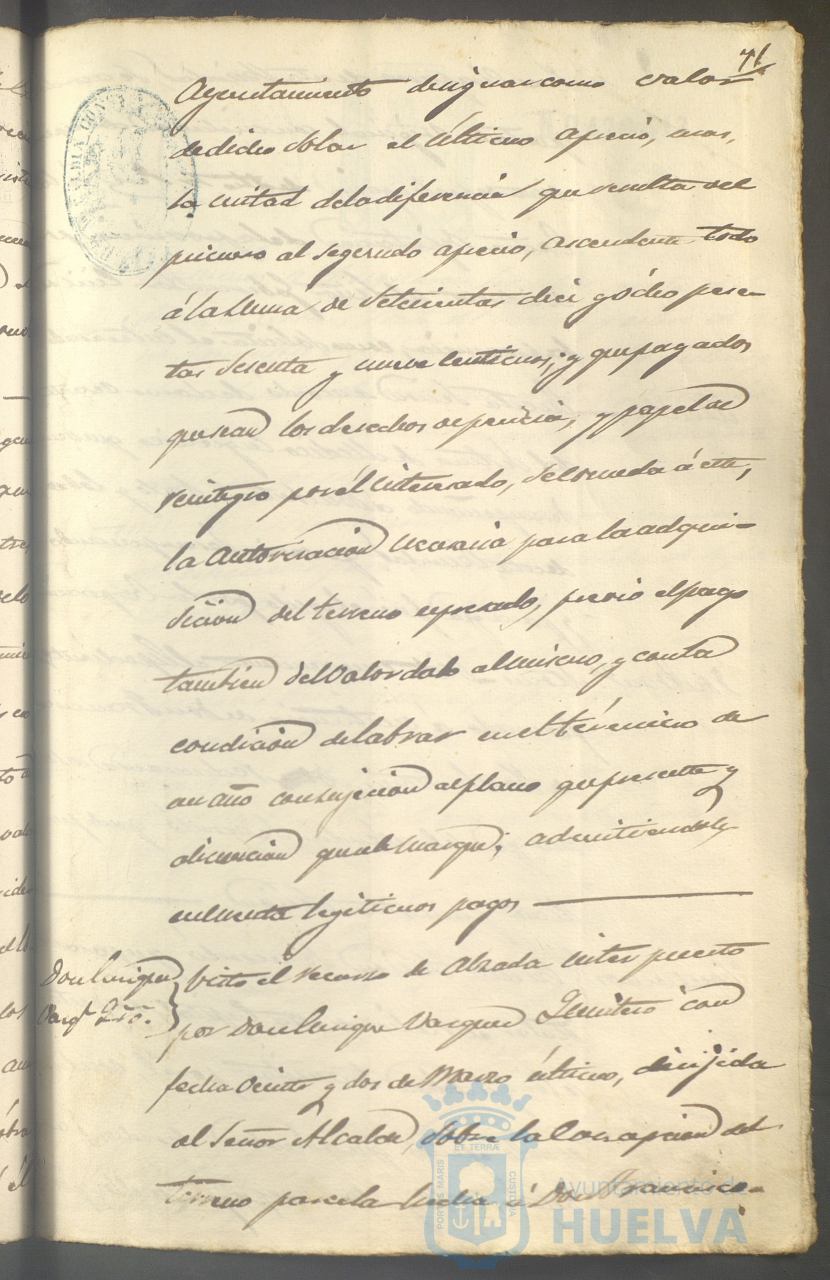 71
Ayuntamiento designar como valor
de dicho solar el último aprecio, mas,
la mitad de la diferencia que resulta del
primero al segundo aprecio, ascendente todo
á la suma de setecientas diez y ocho pese-
tas sesenta y nueve centimos; y que pagados
que sean los derechos de pericia, y papel de
reintegro por él interesado, se le conceda á este,
la autorización necesaria para la adqui-
sicion del terreno espresado, previo el pago
tambien del valor dado al mismo, y con la
condicion de labrar en el término de
un año con sujecion al plano que presente y
alineacion que se le marque; admitiendole
en cuenta legitimos pagos
Don Enrique
Vazqz Qro.
Visto el recurso de Alzada interpuesto
por Don Enrique Vazquez Quintero con
fecha veinte y dos de Marzo último, dirijida
al Señor Alcalde, sobre la concepcion del
terreno parcela hecha á Don Francisco
PORTUS MARIS
ET TERRÆ
CUSTODIA
Ayuntamiento de
HUELVA